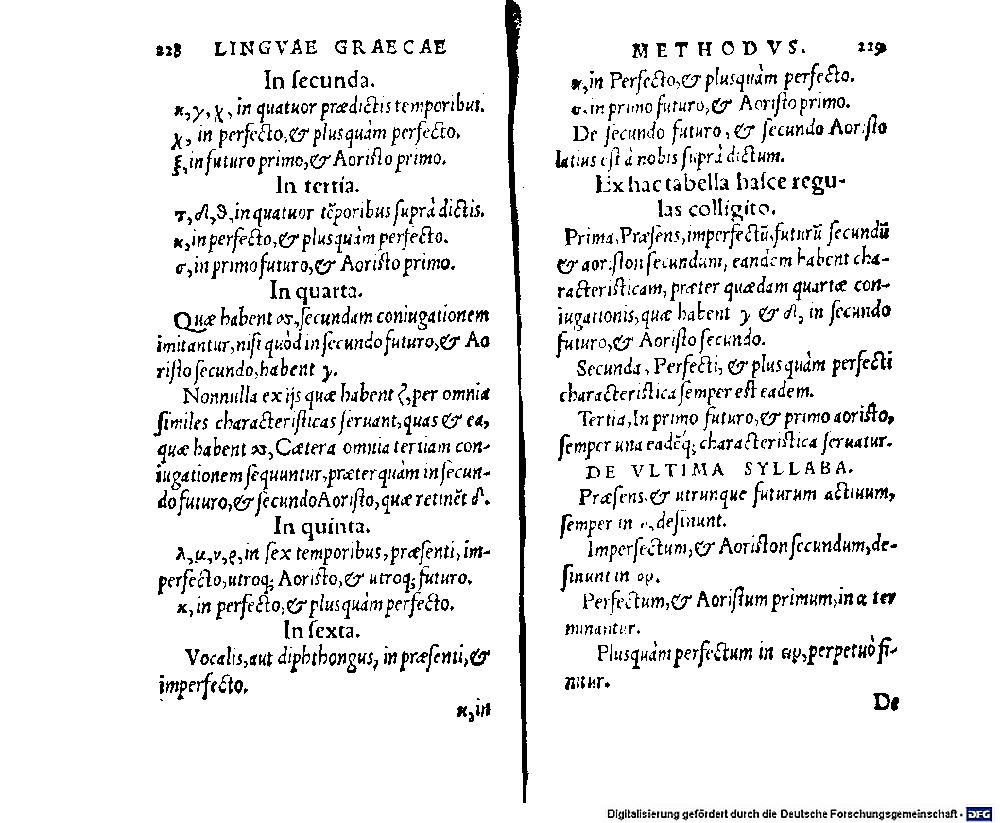 228 LINGVAE GRAECAE
In ſecunda.
κ, γ, χ, in quatuor prædictis temporibus.
χ, in perfecto, & plusquàm perfecto.
ξ, in futuro primo, & Aoriſto primo.
In tertia.
τ, δ, θ, in quatuor tẽporibus ſuprà dictis.
κ, in perfecto, & plusquàm perfecto.
σ, in primo futuro, & Aoriſto primo.
In quarta.
Quæ habent σσ, ſecundam coniugationem
imitantur, niſi quòd in ſecundo futuro, & Ao
riſto ſecundo, habent γ.
Nonnulla ex ijs quæ habent ζ, per omnia
ſimiles characteriſticas ſeruant, quas & ea,
quæ habent σσ, Cætera omnia tertiam con-
iugationem ſequuntur, præterquàm in ſecun-
do futuro, & ſecundo Aoriſto, quæ retinẽt δ.
In quinta.
λ, μ, ν, ρ, in ſex temporibus, præſenti, im-
perfecto, utroq; Aoriſto, & utroq; futuro.
κ, in perfecto, & plusquàm perfecto.
In ſexta.
Vocalis, aut diphthongus, in præſenti, &
imperfecto.
κ, in
METHODVS. 229
κ, in Perfecto, & plusquàm perfecto.
σ, in primo futuro, & Aoriſto primo.
De ſecundo futuro, & ſecundo Aoriſto
latius eſt à nobis ſuprà dictum.
Ex hac tabella haſce regu-
las colligito.
Prima, Præſens, imperfectũ, futurũ ſecundũ
& aoriſton ſecundum, eandem habent cha-
racteriſticam, præter quædam quartæ con-
iugationis, quæ habent γ & δ, in ſecundo
futuro, & Aoriſto ſecundo.
Secunda, Perfecti, & plusquàm perfecti
characteriſtica ſemper eſt eadem.
Tertia, In primo futuro, & primo aoriſto,
ſemper una eadẽq; characteriſtica ſeruatur.
DE VLTIMA SYLLABA.
Præſens & utrunque futurum actiuum,
ſemper in , deſinunt.
Imperfectum, & Aoriſton ſecundum, de-
ſinunt in ον.
Perfectum, & Aoriſtum primum, in α ter
minantur.
Plusquàm perfectum in ειν, perpetuò fi-
nitur.
De
Digitalisierung gefördert durch die Deutsche Forschungsgemeinschaft - DFG